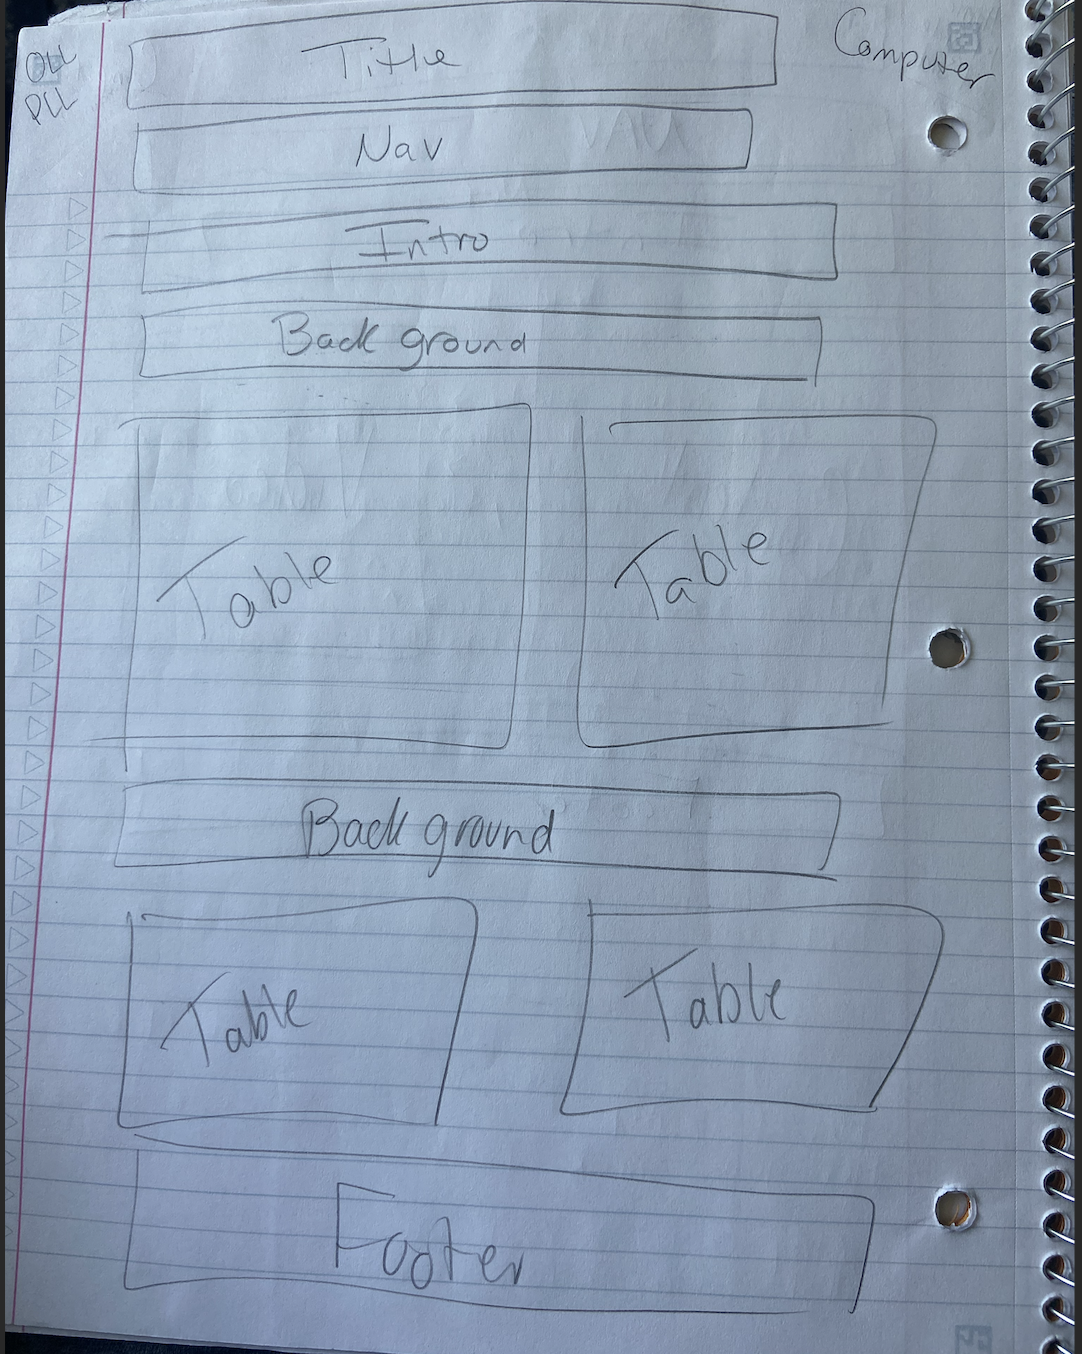 OLL
PLL
Title
Computer
Nav
Intro
Back ground
Table
Table
Back ground
Table
Table
Footer